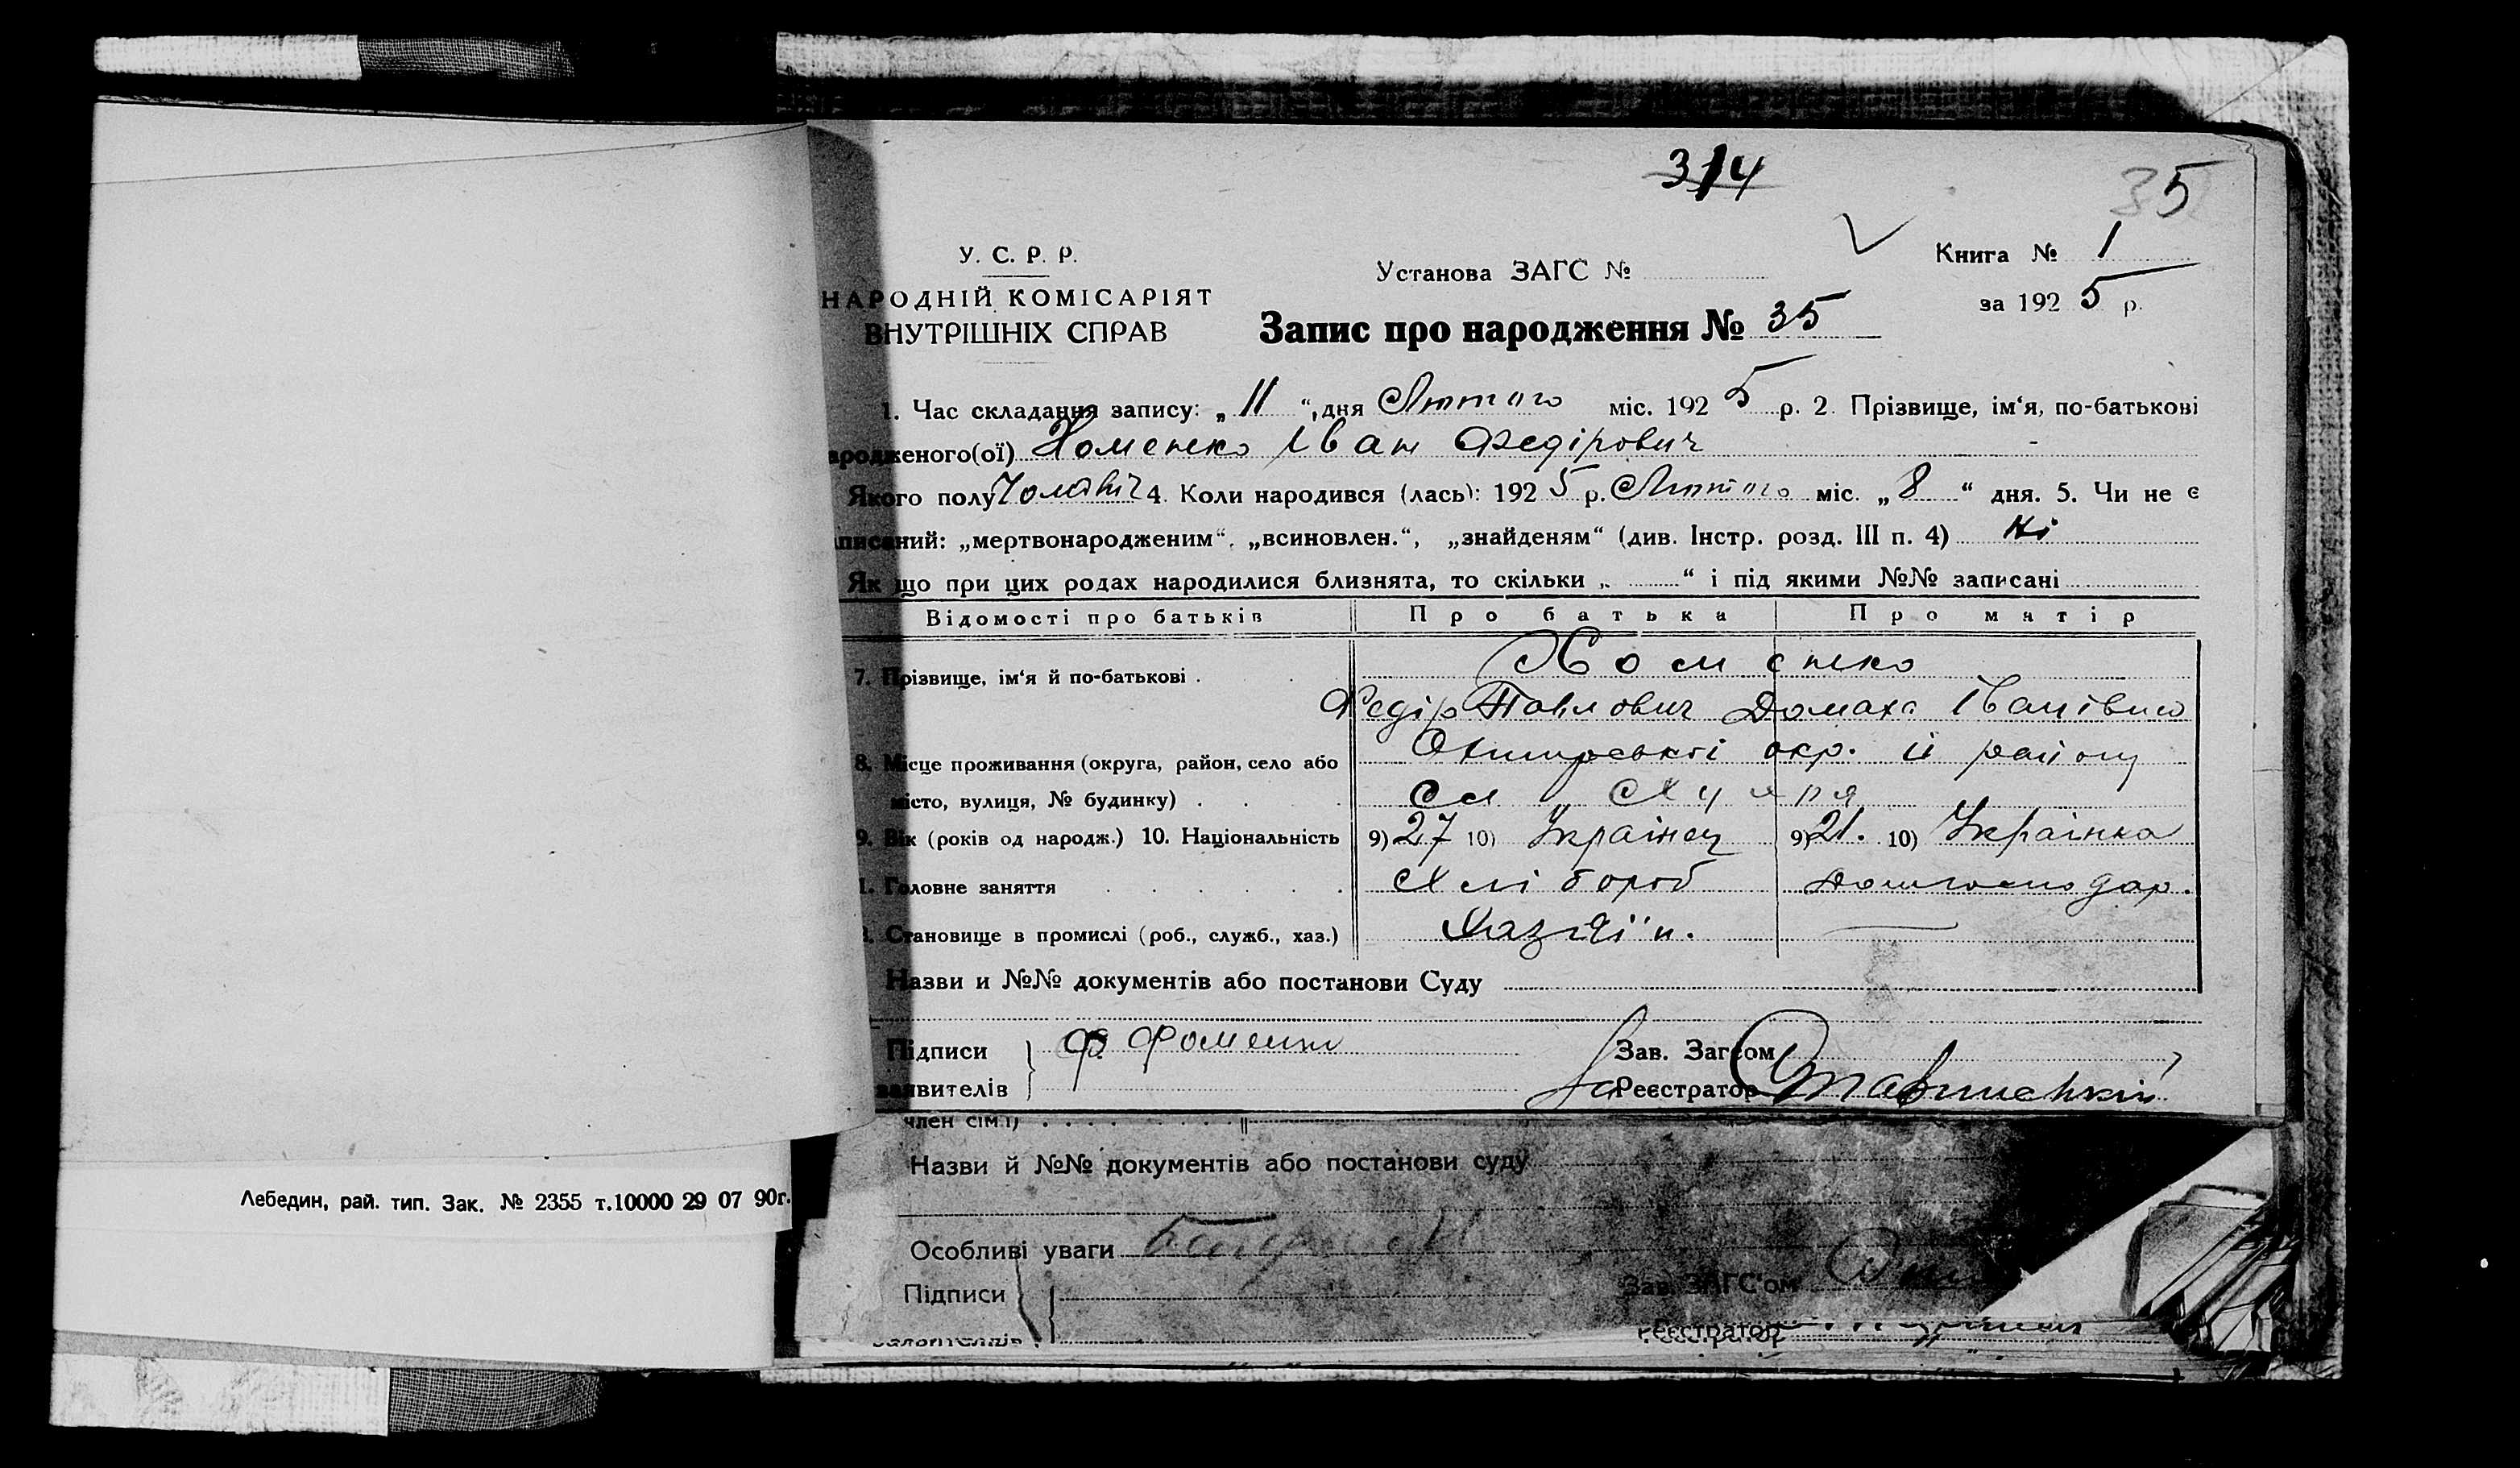 314
35
У. С. Р. Р.
НАРОДНІЙ КОМІСАРІЯТ
ВНУТРІШНІХ СПРАВ
Установа ЗАГС №
Книга № 1
за 1925 р.
Запис про народження № 35
1. Час складання запису: „ 11 “, дня Лютого міс. 1925 р. 2. Прізвище, ім‘я, по-батькові
ародженого(ої) Хоменко Іван Федірович
Якого полу Чоловіч 4. Коли народився (лась): 1925 р. Лютого міс. „ 8 “ дня. 5. Чи не є
аписаний: „мертвонародженим“, „всиновлен.“, „знайденям“ (див. Інстр. розд. III п. 4) Ні
Як що при цих родах народилися близнята, то скільки „ “ і під якими №№ записані
Відомості про батьків Про батька Про матір
7. Прізвище, ім‘я й по-батькові . Хоменко
Федір Павлович Домаха Іванівна
8. Місце проживання (округа, район, село або Охтирської окр. й району
місто, вулиця, № будинку) . . .
9. Вік (років од народж.) 10. Національність 9) 27 10) Українец 9) 21. 10) Українка
1. Головне заняття . . . . . . Хлібороб Домгосподар.
. Становище в промислі (роб., служб., хаз.) Хазяїн.
Назви и №№ документів або постанови Суду
Підписи Ф. Фоменко Зав. Загсом
заявителів За Реєстратор
член сім'ї) . . . . . . . . .
Назви й №№ документів або постанови суду
Особливі уваги
Підписи Зав. ЗАГС'ом
Реєстратор
Лебедин, рай. тип. Зак. № 2355 т.10000 29 07 90г.